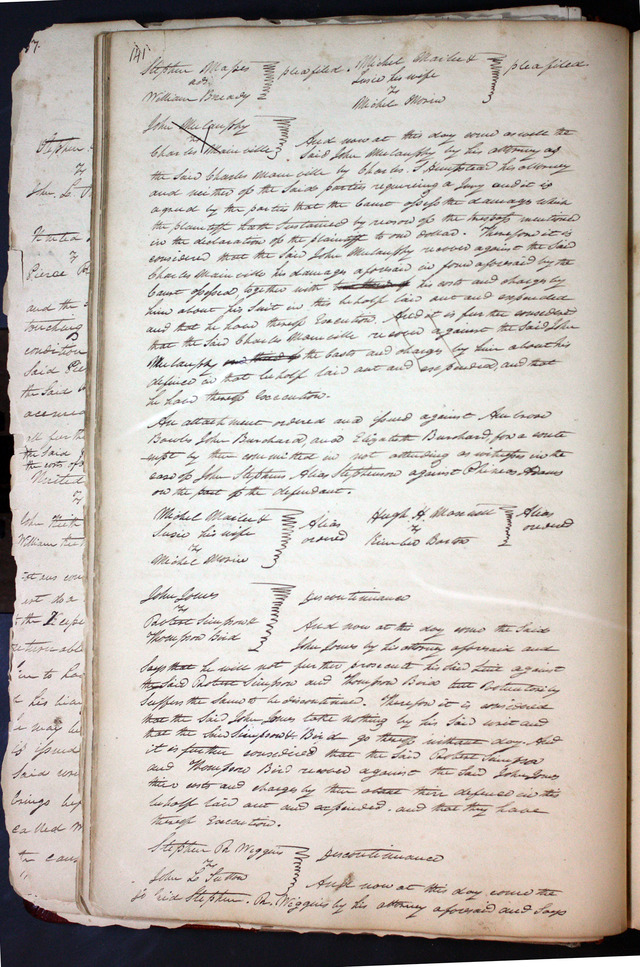 141
Stephen Masses
ads.
William Bready
plea filed.
Michel Marlie &
Susie his wife
vs
Michel Morin
plea filed
John McLanphy
vs
Charles Mainville
And now at this day come as well the
said John McLanphy by his attorney as
the said Charles Mainville by Charles S Hempstead his attorney
and neither of the said parties requireing a Jury and it is
agreed by the parties that the Court assess the damages which
the plaintiff hath sustained by reason of the trespass mentioned
in the declaration of the plaintiff to one Dollar. Therefore it is
considered that the said John McLanphy recover against the said
Charles Mainville his damages aforesaid in form aforesaid by the
Court assessed, together with his costs and charges by
him about his suit in this behalf laid out and expended
and that he have thereof Execution. And it is further considered
that the said Charles Mainville recover against the said John
McLanphy the Costs and charges by him about his
defence in that behalf laid out and expended, and that
he have thereof Execution.
An attachment ordered and issued against Ambrose
Bowles John Burchard, and Elizabeth Burchard, for a conte
mpt by them committed in not attending as witnesses in the
case of John Stephens Alias Stephenson against Phineas Adams
on the part of the defendant.
Michel Marlie &
Susie his wife
vs
Michel Morin
Alias
ordered
Hugh H. Maxwell
vs
Barton
Alias
ordered
John Jones
vs
Robert Simpson &
Thompson Bird
Discontinuance
And now at this day come the said
John Jones by his attorney aforesaid and
says that he will not further prosecute his said suit against
the said Robert Simpson and Thompson Bird but voluntarily
suffers the same to be discontinued. Therefore it is considered
that the said John Jones take nothing by his said writ and
that the said Simpson & Bird go thereof without day. And
it is further considered that the said Robert Simpson
and Thompson Bird recover against the said John Jones
their costs and charges by them about their defence in this
behalf laid out and expended. and that they have
thereof Execution.
Stephen R. Wiggins
vs
John L Sutton
Discontinuance
And now at this day come the
said Stephen. R. Wiggins by his attorney aforesaid and says
57.
Stephen
vs
John L
United
vs
Pierce
and the
touching
condition
said
the said
all further
the said
the costs of
United
vs
John
William the